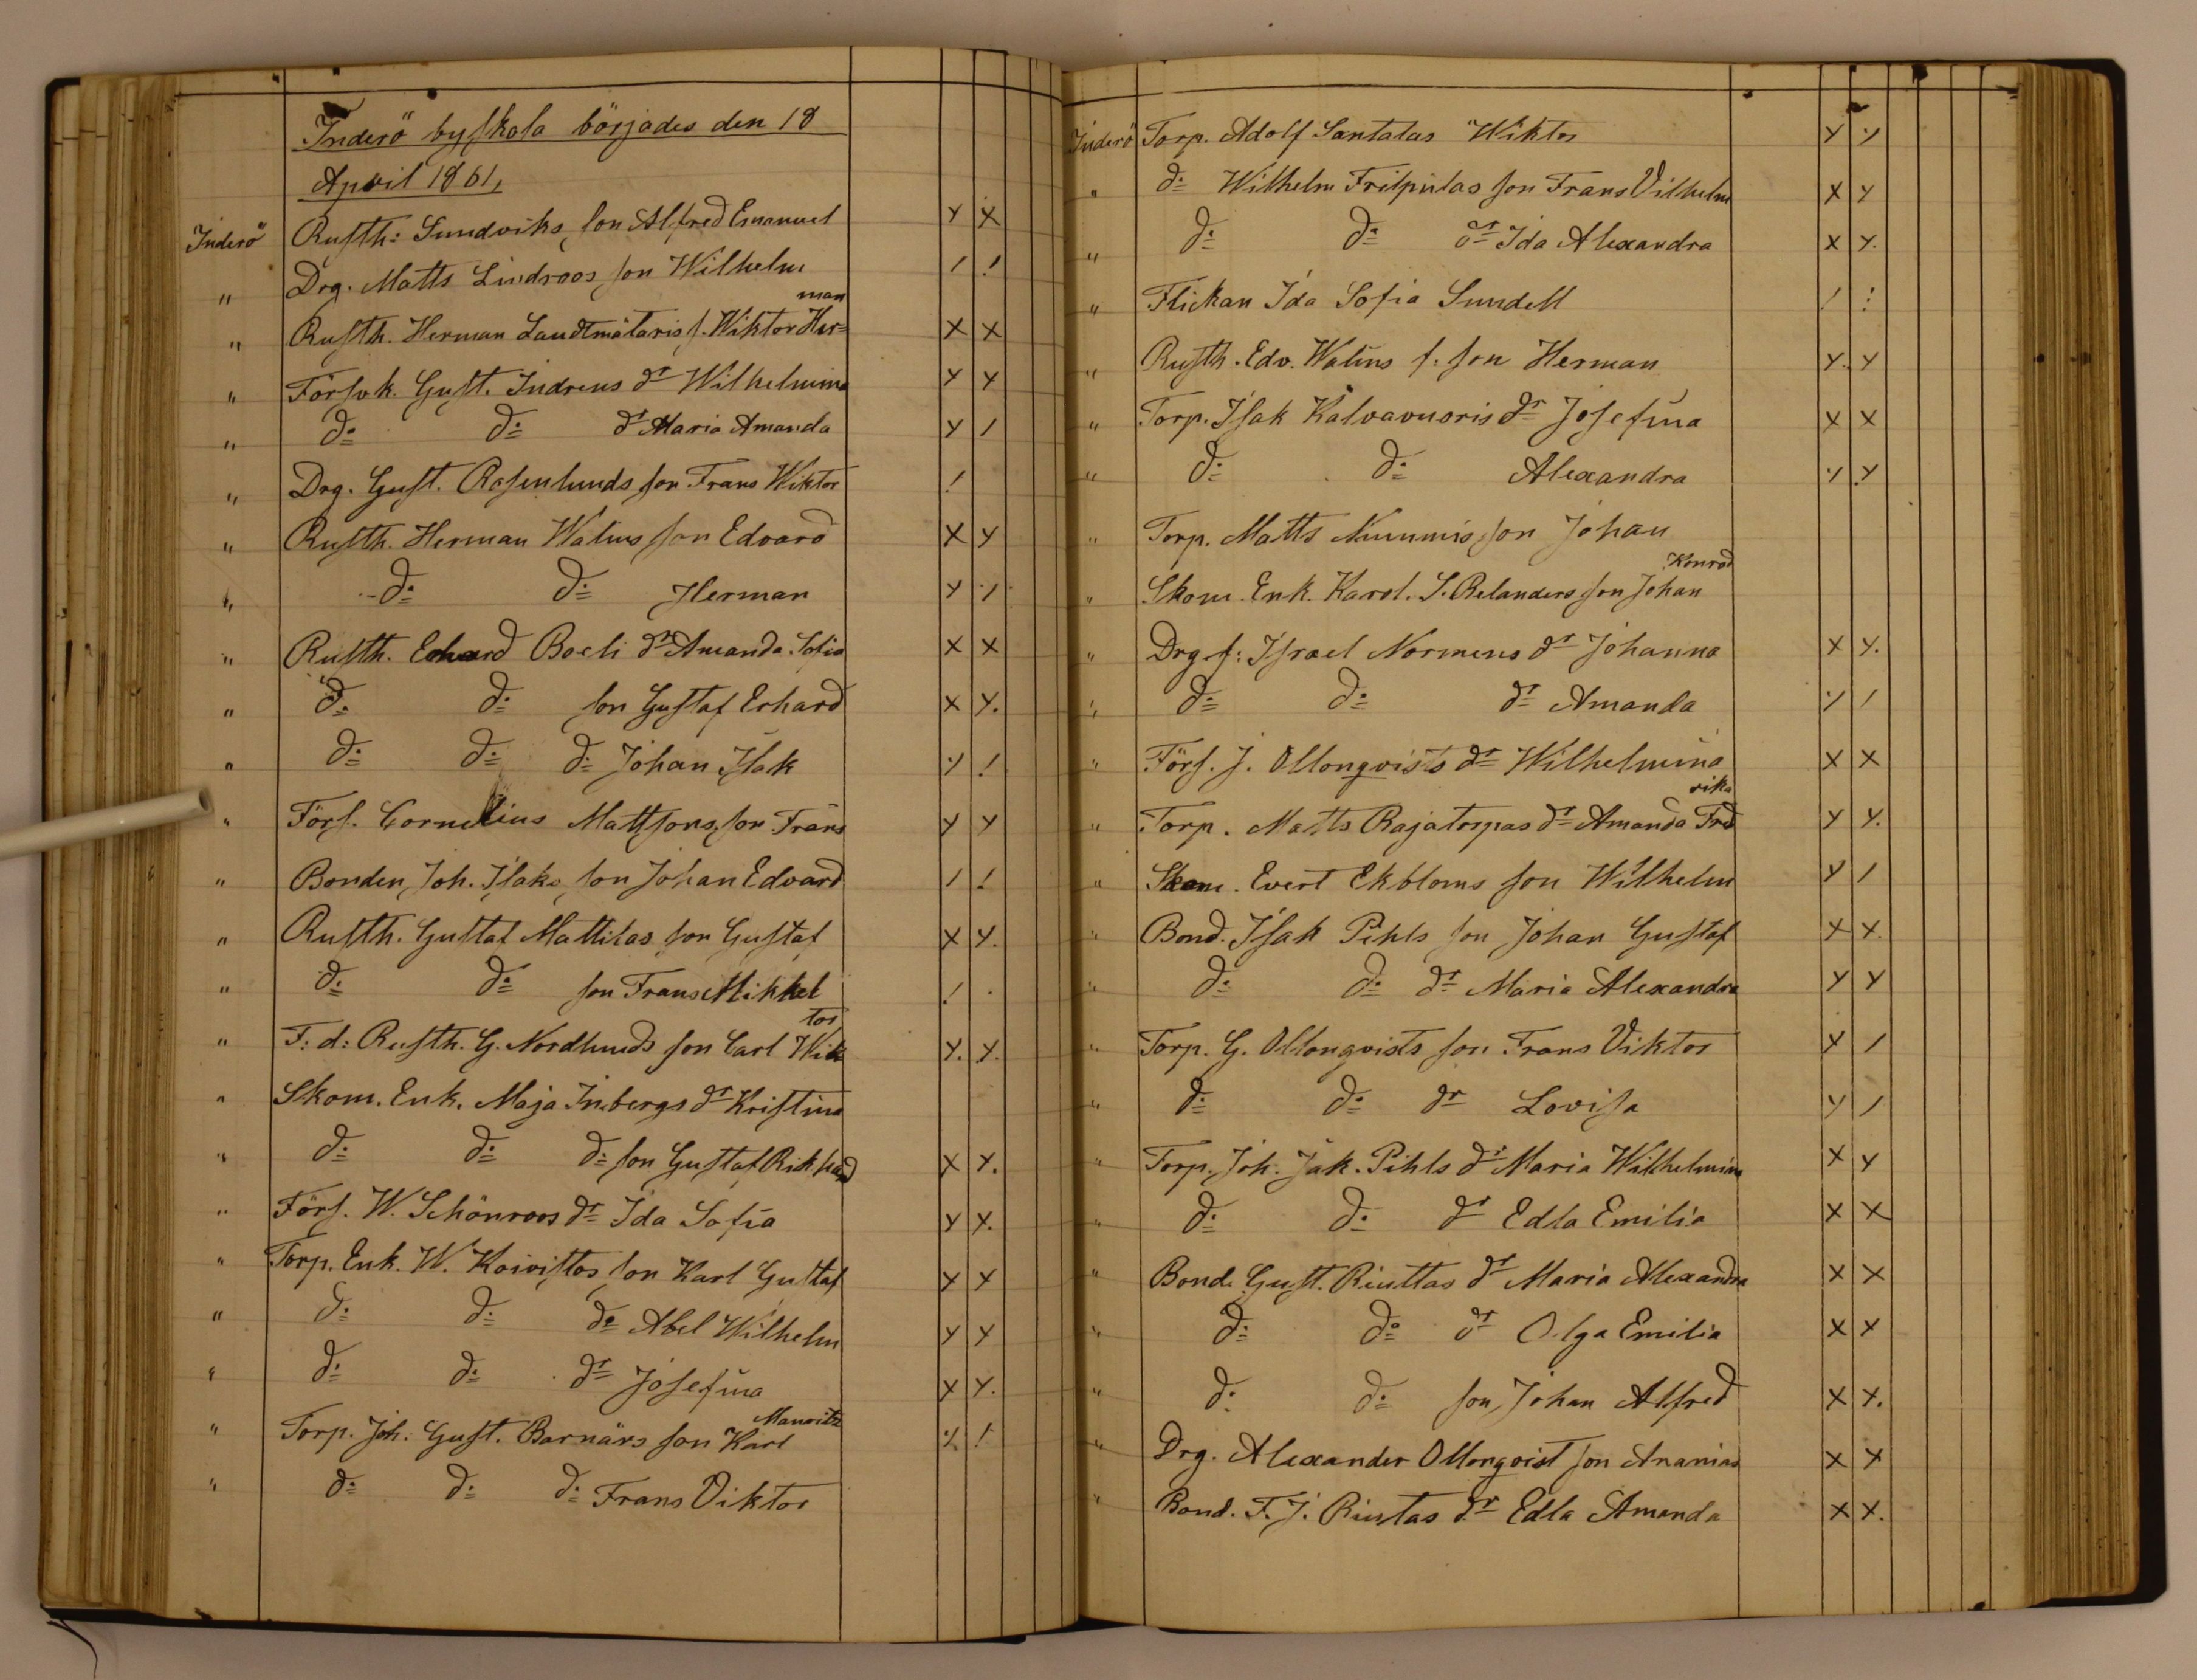 Inderö byskola börjades den 18
April 1861,
Inderö Rusth: Sundviks son Alfred Emanuel Y X
" Drg. Matts Lindroos son Wilhelm / /
man
" Rusth. Herman Landtmätaris s. Wiktor Her= X X
" Försvk. Gust. Indrens dr Wilhelmina Y Y
" do do dr Maria Amanda Y /
" Drg. Gust. Rosenlunds son Frans Wiktor /
" Rusth. Herman Walins son Edvard X Y
" do do Herman Y /
" Rusth. Erhard Boeli dr Amanda Sofia X X
" do do son Gustaf Erhard X Y.
" do do do Johan Isak Y /
" Förs. Cornelius Mattsons son Frans Y Y
" Bonden Joh. Isaks son Johan Edvard / /
" Rusth. Gustaf Mattilas son Gustaf X Y.
" do do son Frans Mikkel / .
tor
" F: d: Rusth. G. Nordlunds son Carl Wik Y. Y.
" Skom. Enk. Maja Inbergs dr Kristina
" do do do son Gustaf Rikhard X Y.
" Förs. W. Schönroos dr Ida Sofia Y Y.
" Torp. Enk. W. Koivistos son Karl Gustaf Y X
" do do do Abel Wilhelm Y Y
" do do dr Josefina X Y.
Mauritz
" Torp. Joh: Gust. Barnärs son Karl Y /
" do do do Frans Viktor
Inderö Torp. Adolf Santalas Wiktor Y Y
" do Wilhelm Frilpulas son Frans Vilhelm X Y
" do do dr Ida Alexandra X Y.
" Flickan Ida Sofia Sundell / :
" Rusth. Edv. Walins f: son Herman Y. Y
" Torp. Isak Kalvavuoris dr Josefina X X
" do do Alexandra Y Y
" Torp. Matts Nummis son Johan
Konrad
" Skom. Enk. Karol. S. Relanders son Johan
" Drg. f: Israel Normens dr Johanna X Y.
" do do dr Amanda Y /
" Förs. J. Ollonqvists dr Wilhelmina X X
rika
" Torp. Matts Rajatorpas dr Amanda Fred Y Y.
" Skom. Evert Ekbloms son Wilhelm Y /
" Bond. Isak Pihls son Johan Gustaf X X.
" do do dr Maria Alexandra Y Y
" Torp. G. Ollonqvists son Frans Viktor Y /
" do do dr Lovisa Y /
" Torp. Joh. Jak. Pihls dr Maria Wilhelmina X Y
" do do dr Edla Emilia X X
" Bond. Gust. Riuttas dr Maria Alexandra X X
" do do dr Olga Emilia X Y
" do do son Johan Alfred X Y.
" Drg. Alexander Ollonqvist son Ananias X X
" Bond. F. J. Riutas dr Edla Amanda X X.